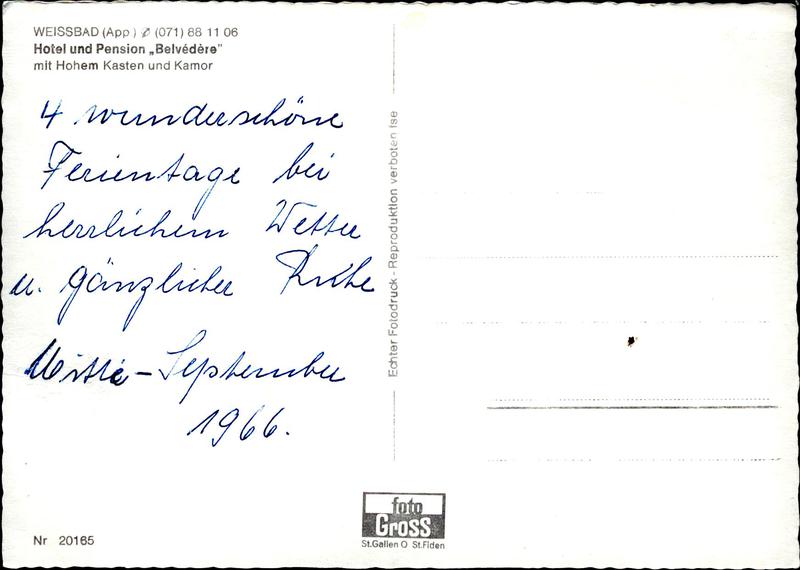 WEISSBAD (App) ✆ (071) 88 11 06
Hotel und Pension „Belvédère"
mit Hohem Kasten und Kamor
4 wunderschöne
Ferientage bei
herrlichem Wetter
u. gänzlicher Ruhe
Mitte - September
1966.
Echter Fotodruck - Reproduktion verboten Ise
foto
Gross
St.Gallen O St.Fiden
Nr 20165